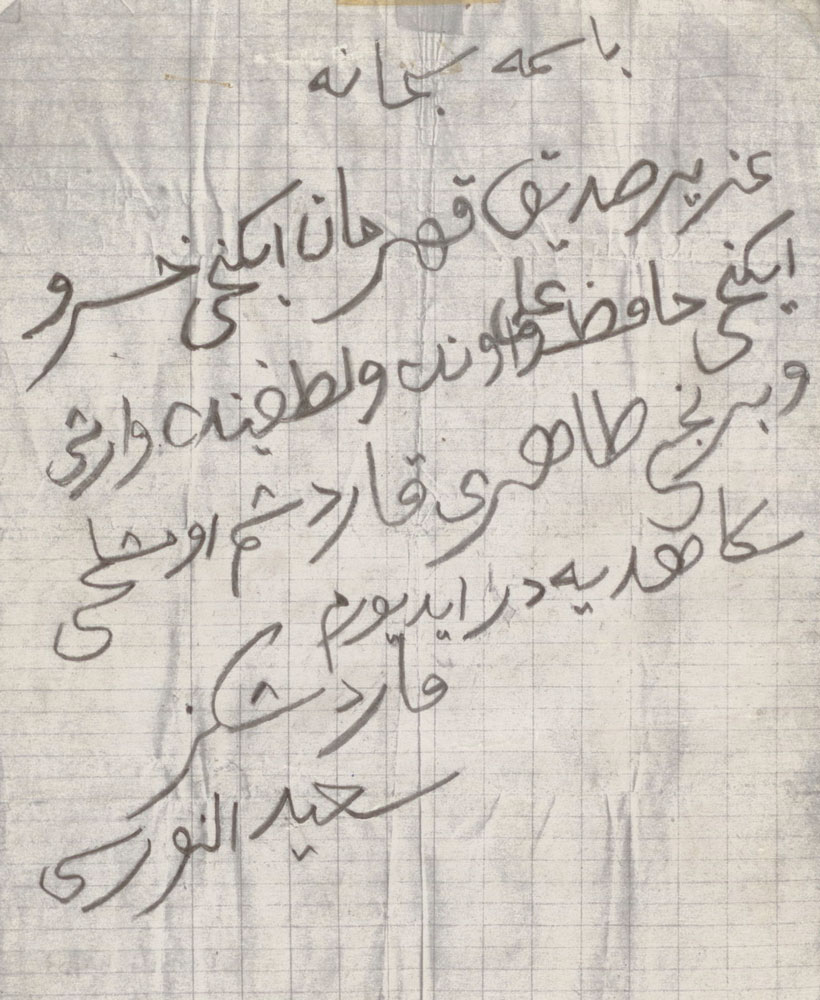 باسمه سبحانه
عزیز صدیق قهرمان ایکنجی خسرو
ایکنجی حافظ علی و لطفینك وارثی
و برنجی طاهری قاردشم اوشاكی
سكا هدیه در ایدیورم
قاردشكز
سعید النورسی